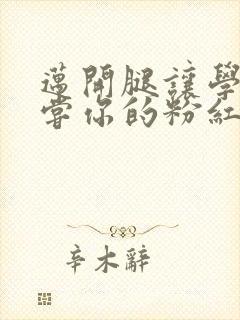 邁開腿讓學
嘗你的粉紅
辛木辭